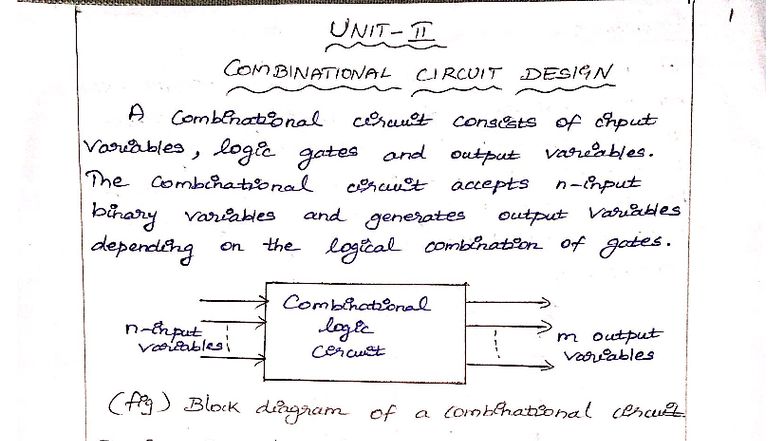 1
UNIT-II
COMBINATIONAL CIRCUIT DESIGN
A Combinational circuit consists of input
variables, logic gates and output variables.
The combinational circuit accepts n-input
binary variables and generates output variables
depending on the logical combination of gates.
Combinational
logic
circuit
n-input
variables
m output
variables
(fig) Block diagram of a combinational circuit